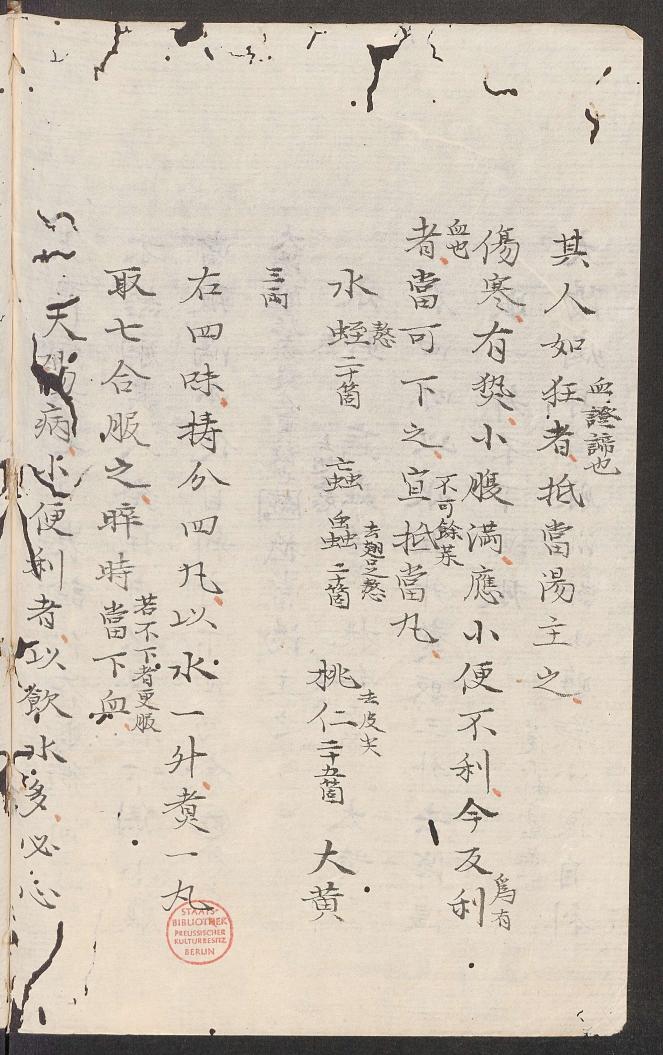 其人如狂者抵當湯主之
血證諦也
傷寒有𤍠小腹滿應小便不利今反利
為有
血也
者當可下之宜抵當九
不可餘茱
水蛭二十箇 䖟蟲二十箇 桃仁二十五箇 大黄
熬
去翅足熬
去皮尖
三兩
右四味擣分四九以水一升煮一九
取七合服之晬時當下血
若不下者更服
太陽病小便利者以飲水多必心
STAATS-
BIBLIOTHEK
PREUSSISCHER
KULTURBESITZ
BERLIN